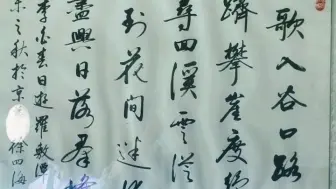 歌入谷口路
躋攀崖度絕
尋回溪雲從
到花間迷
盡興日落群峰
李白春日遊羅敷潭
之秋於京
徐四海